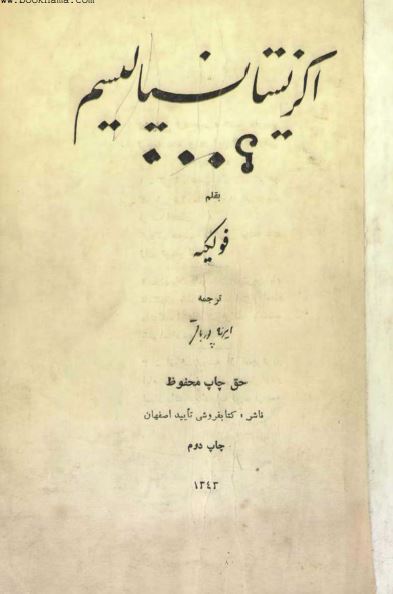 www.booknama.com
اگزیستانسیالیسم
؟...
بقلم
فولکیه
ترجمه
ایرج پورباقر
حق چاپ محفوظ
ناشر، کتابفروشی تأیید اصفهان
چاپ دوم
۱۳۴۳